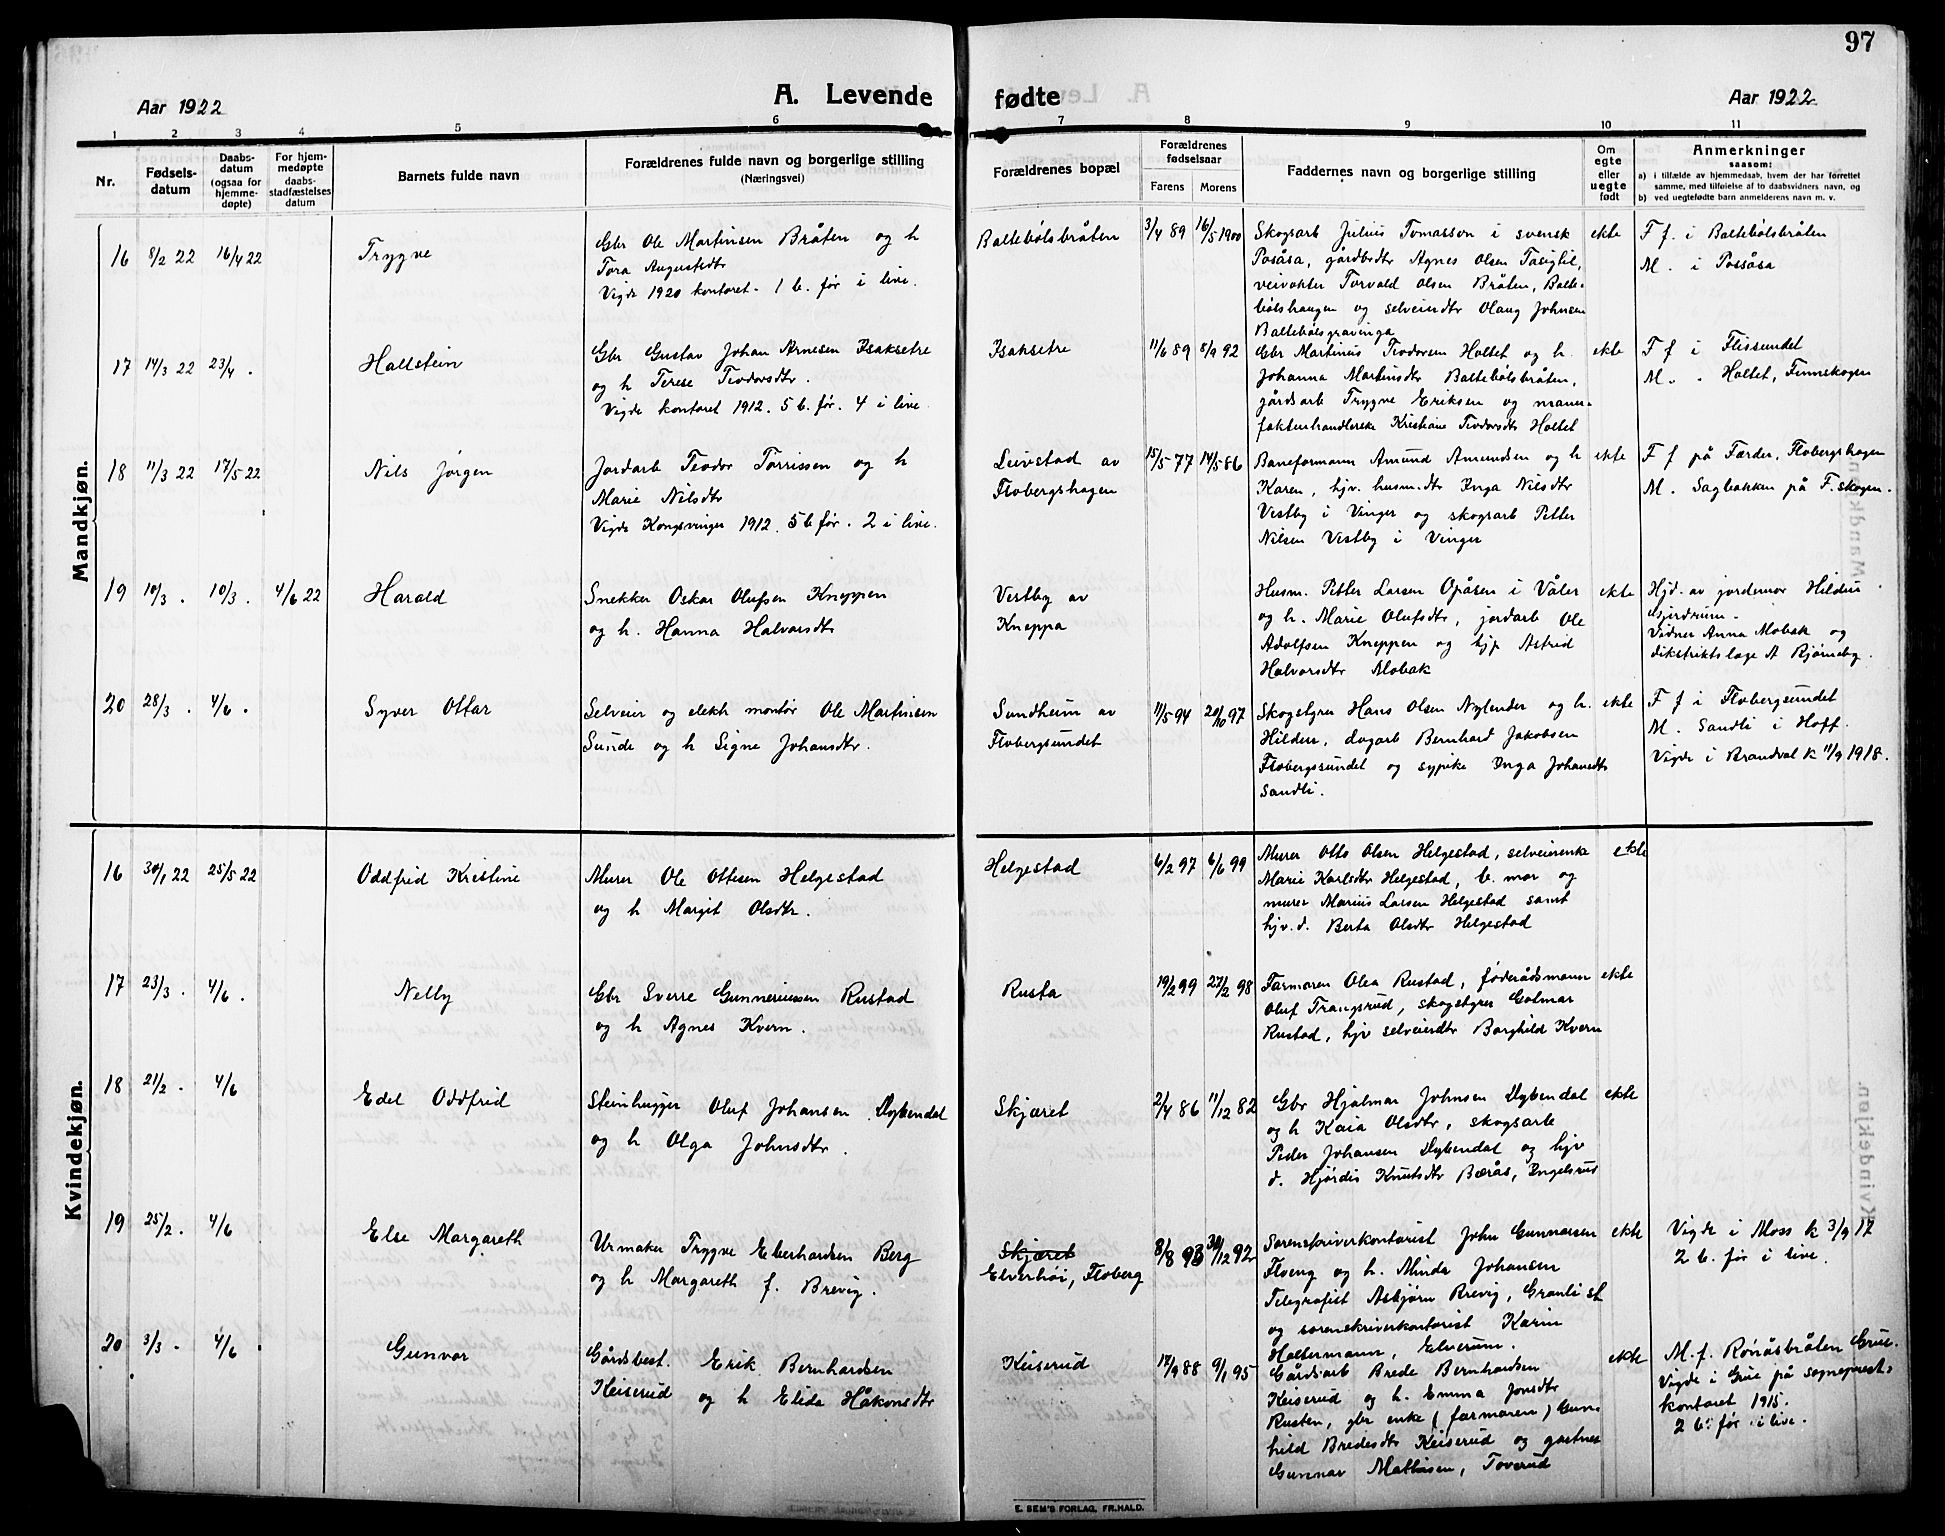 97
Aar 1922
A. Levende
fødte
Aar 1922
1 2 3 4 5 6 7 8 9 10 11
Nr.
Fødsels-
datum
Daabs-
datum
(ogsaa for
hjemme-
døpte)
For hjem-
medøpte
daabs-
stadfæstelses
datum
Barnets fulde navn
Forældrenes fulde navn og borgerlige stilling
(Næringsvei)
Forældrenes bopæl
Forældrenes
fødselsaar
Farens Morens
Faddernes navn og borgerlige stilling
Om
egte
eller
uegte
født
Anmerkninger
saasom:
a) i tilfælde av hjemmedaab, hvem der har forrettet
samme, med tilføielse af to daabsvidners navn, og
b) ved uegtefødte barn anmelderens navn m. v.
Mandkjøn.
16 8/2 22 16/4 22
Trygve
Gbr Ole Martinsen Bråten og h
Tora Augustsdtr
Vigde 1920 kontoret. 1 b. før i live.
Baltebølsbråten
3/4 89 16/5 1900
Skogsarb Julius Tomasson i svensk
Posåsa, gårdbdtr Agnes Olsen
veivokter Torvald Olsen Bråten, Balte-
bølshaugen og selveierdtr Olaug Johnsen
Baltebølsgravinga
ekte
F f. i Baltebølsbråten
M. i Possåsa
17 14/3 22 23/4 .
Hallstein
Gbr Gustav Johan Arnesen Isaksetre
og h Terese Teodorsdtr.
Vigde kontoret 1912. 5 b. før. 4 i live.
Isaksetre
11/6 89 8/9 92
Gbr Martinus Teodorsen Holtet og h.
Johanna Martinsdtr Baltebølsbråten,
gårdsarb Trygve Eriksen og manu-
fakturhandlerske Kristiane Teodorsdtr Holtet
ekte
F f i Flissundet
M. " Holtet, Finnskogen
18 11/3 22 17/5 22
Nils Jørgen
Jordarb Teodor Torrissen og h
Marie Nilsdtr
Vigde Kongsvinger 1912. 5 b før. 2 i live.
Leivstad av
Flobergshagen
15/5 77 14/5 86
Baneformann Amund Amundsen og h
Karen, hjv. husm.dtr Inga Nilsdtr
Vestby i Vinger og skogsarb Petter
Nilsen Vestby i Vinger
ekte
F f på Færder, Flobergshagen
M. Sagbakken på F.skogen.
19 10/3 . 10/3 . 4/6 22
Harald
Snekker Oskar Olufsen Kneppen
og h. Hanna Halvorsdtr
Vestby av
Kneppa
Husm. Petter Larsen Opåsen i Våler
og h. Marie Olufsdtr, jordarb Ole
Adolfsen Kneppen og hjp Astrid
Halvorsdtr Mobak
ekte
Hjd. av jordemor Hildur
Gjerdrum.
Vidner Anna Mobak og
distriktslæge A Bjørneby.
20 28/3 . 4/6 .
Syver Ottar
Selveier og elektr montør Ole Martinsen
Sunde og h Signe Johansdtr.
Sundheim av
Flobergsundet
11/5 94 20/10 97
Skogstyrer Hans Olsen Nylender og h.
Hildur, dagarb Bernhard Jakobsen
Flobergsundet og sypike Inga Johansdtr
Sandli.
ekte
F f i Flobergsundet
M. Sandli i Hoff.
Vigde i Brandval k 11/9 1918.
Kvindekjøn.
16 30/1 22 25/5 22
Oddfrid Kristine
Murer Ole Ottesen Helgestad
og h Margit Olsdtr.
Helgestad
6/2 97 6/6 99
Murer Otto Olsen Helgestad, selveierenke
Marie Karlsdtr Helgestad, b. mor og
murer Marius Larsen Helgestad samt
hjv.d. Berta Olsdtr Helgestad
ekte
17 23/3 . 4/6 .
Nelly
Gbr Sverre Gunneriussen Rustad
og h Agnes Kvern.
Rusta
19/2 99 27/2 98
Farmoren Olea Rustad, føderådsmann
Oluf Trangsrud, skogstyrer Golmar
Rustad, hjv selveierdtr Borghild Kvern
ekte
18 21/2 . 4/6
Edel Oddfrid
Steinhugger Oluf Johansen Dybendal
og h Olga Johnsdtr.
Skjæret
2/4 86 11/12 82
Gbr Hjalmar Johnsen Dybendal
og h Kaia Olsdtr, skogsarb
Peder Johansen Dybendal og hjv
d. Hjørdis Knutsdtr Bærås, Ingelsrud
ekte
19 25/2 . 4/6
Else Margareth
Urmaker Trygve Eberhardsen Berg
og h Margareth f. Brevig.
Skjæret
Elverhøi, Floberg
8/8 93 30/12 92
Sorenskriverkontorist John Gunnarsen
Floeng og h. Minda Johansen
Telegrafist Asbjørn Brevig, Granli st
og sorenskriverkontorist Karin
Holtermann, Elverum.
ekte
Vigde i Moss k 3/9 17
2 b. før i live.
20 3/3 . 4/6
Gunvor
Gårdsbest. Erik Bernhardsen
Keiserud og h Elida Håkonsdtr
Keiserud
17/9 88 9/1 95
Gårdsarb Brede Bernhardsen
Keiserud og h. Emma Jonsdtr
Rusten, gbr enke (farmoren) Gun-
hild Bredesdtr Keiserud og gartner
Gunnar Mathisen, Toverud
ekte
M. f. Rønåsbråten Grue.
Vigde i Grue på sogneprest-
kontoret 1915.
2 b. før i live.
E. SEM'S FORLAG, FR.HALD.